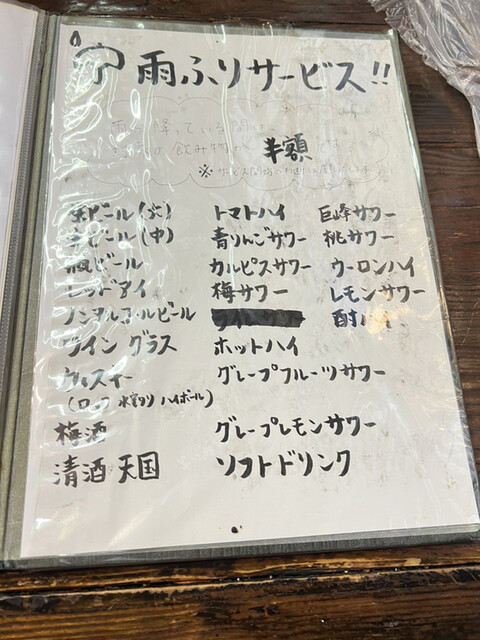 雨ふりサービス!!
雨が降っている間は、
の飲み物が 半額 です
※サービス開始
生ビール(大) トマトハイ 巨峰サワー
生ビール(中) 青りんごサワー 桃サワー
瓶ビール カルピスサワー ウーロンハイ
レッドアイ 梅サワー レモンサワー
ノンアルコールビール 酎ハイ
ワイン グラス ホットハイ
ウイスキー グレープフルーツサワー
(ロック 水割り ハイボール)
梅酒 グレープレモンサワー
清酒 天国 ソフトドリンク